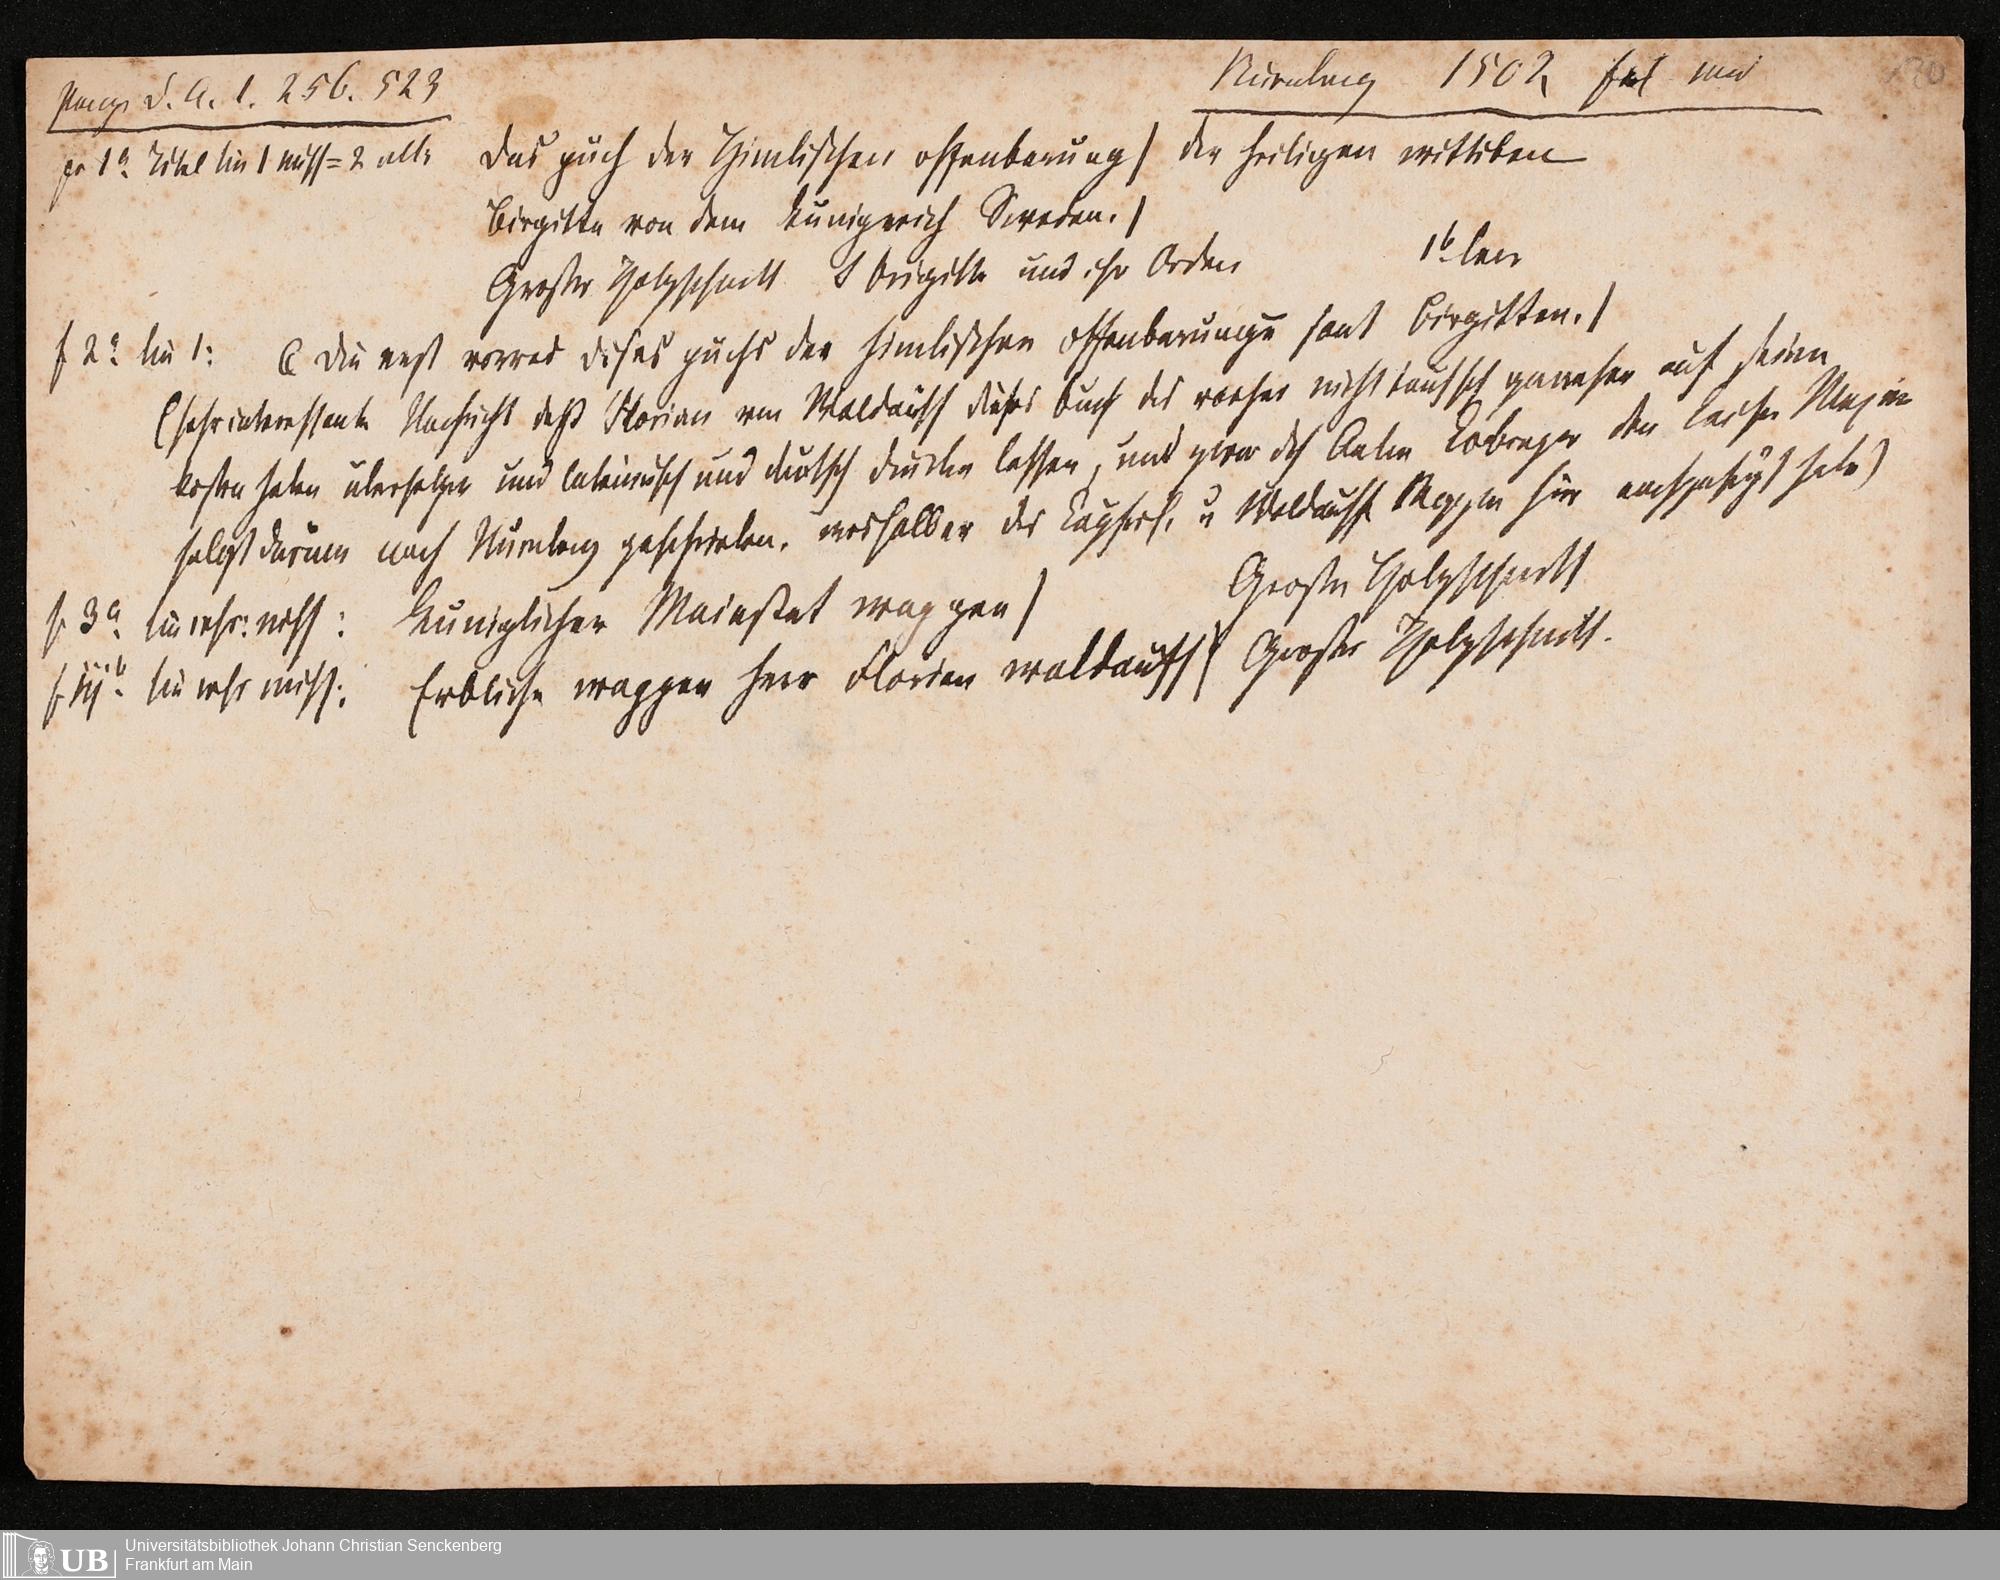 Panzer d. A. 1. 256. 523
Nürnberg 1502 fol
130
1a Titel lin 1 miss = 2 alte Das puch der Himlischen offenbarung / der heiligen wittiben
Birgitte von dem kunigreich Sweden. /
Großer Holzschnitt S Brigitte und ihr Orden 1b leer
f 2a lin 1: C Die erst vorred dises puchs der himlischen offenbarunge sant Birgitten. /
(sehr interessante Nachricht daß Florian von Waldauff dieses Buch das vorher nicht deutsch gewesen auf seine
kosten habe übersetzen und lateinisch und deutsch drucken lassen, und zwar Koberger der Kaiser
selbst darum nach Nürnberg geschrieben, weshalb er das u Waldauffs Wappen hier habe)
f 3a lin miss: Kuniglicher Maiestat wappen / Großer Holzschnitt
lin miss: Erbliche wappen herr Florian waldauff / Großer Holzschnitt.
UB
Universitätsbibliothek Johann Christian Senckenberg
Frankfurt am Main